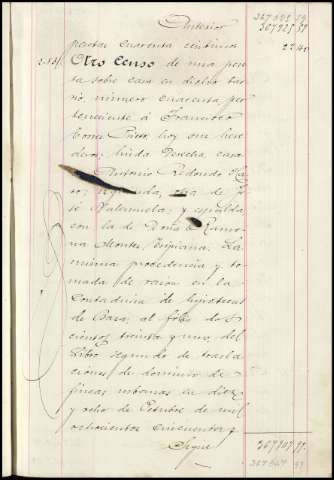 Anterior
367895 59
367825 57
pesetas cuarenta céntimos
22 40
Otro Censo de una peseta
sobre casa en dicho bar
rio, número cuarenta per
teneciente á Francisco
hoy sus here
deros; linda derecha, casa
Antonio Redondo
izquierda, otra de Jo
sé Valenzuela; y espalda
con la de Doña Ramo
na Montes Tripiana. La
misma procedencia y to
mada de razon en la
Contaduria de hipotecas
de Baza, al folio dos
cientos treinta y uno, del
Libro segundo de trasla
ciones de dominio de
fincas urbanas en diez
y ocho de Octubre de mil
ochocientos cincuenta y
Sigue
367847 97
367847 97